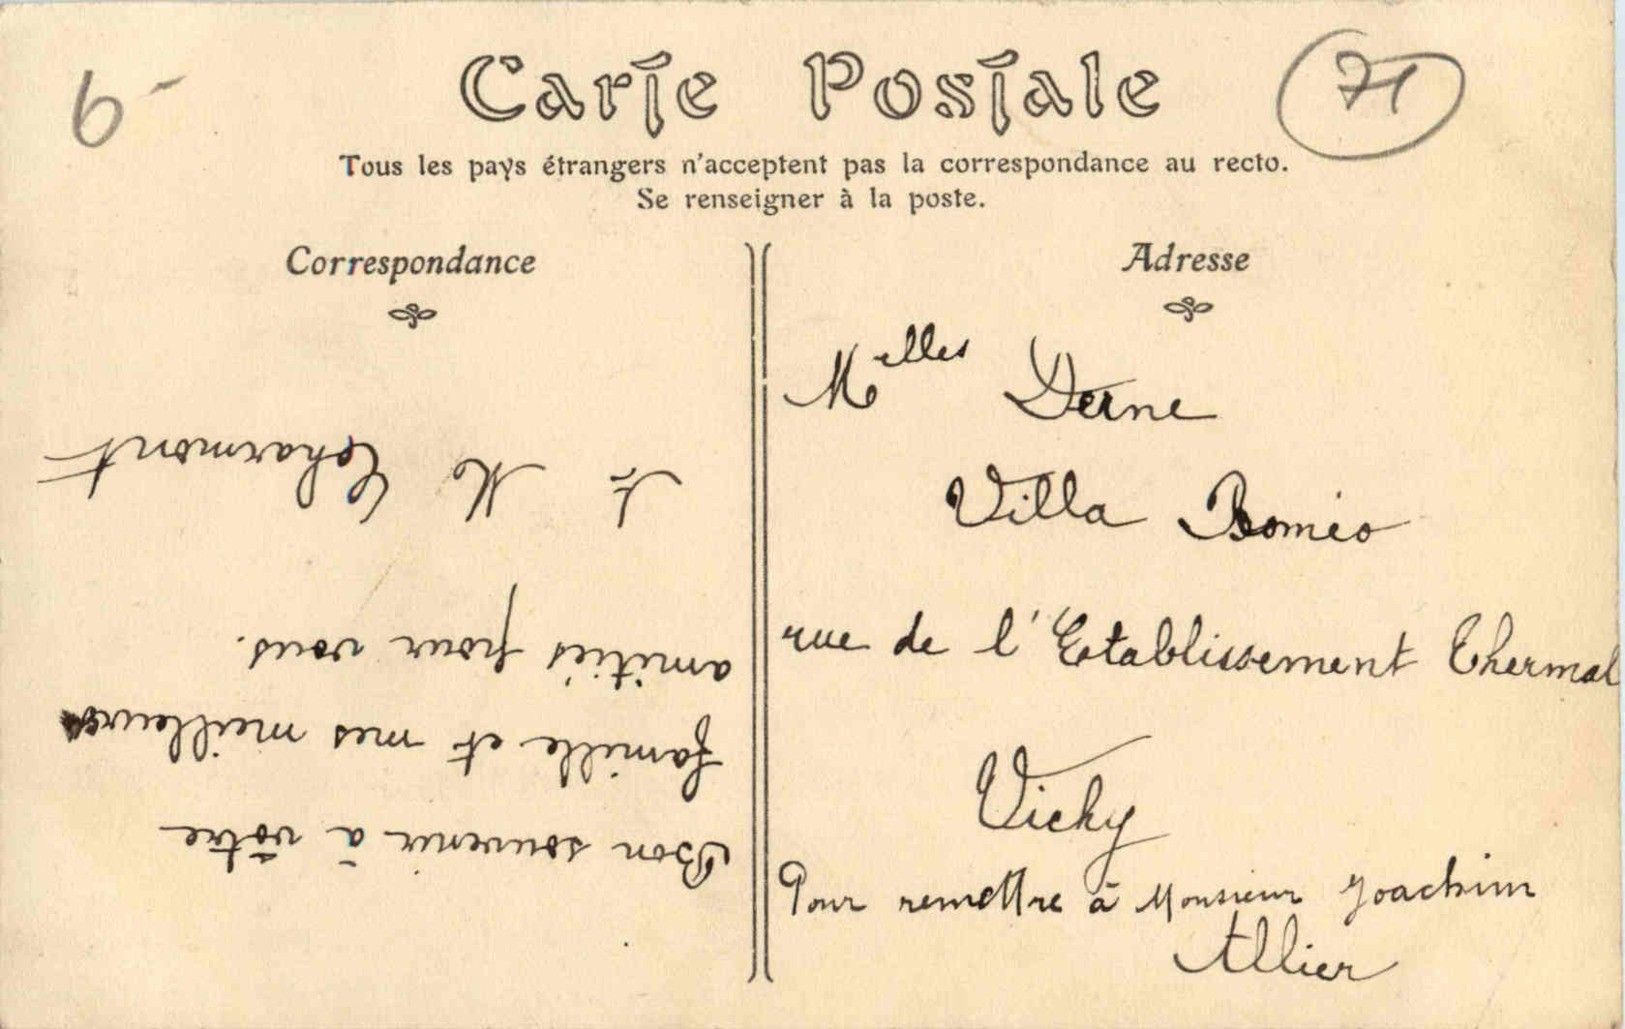 6-
Carte Postale
71
Tous les pays étrangers n'acceptent pas la correspondance au recto.
Se renseigner à la poste.
Correspondance
Bon souvenir à vôtre
famille et mes meilleures
amitiés pour vous.
M Charmont
Adresse
Melles Derne
Villa Roméo
rue de l'Etablissement Thermal
Vichy
Pour remettre à Monsieur Joachim
Allier